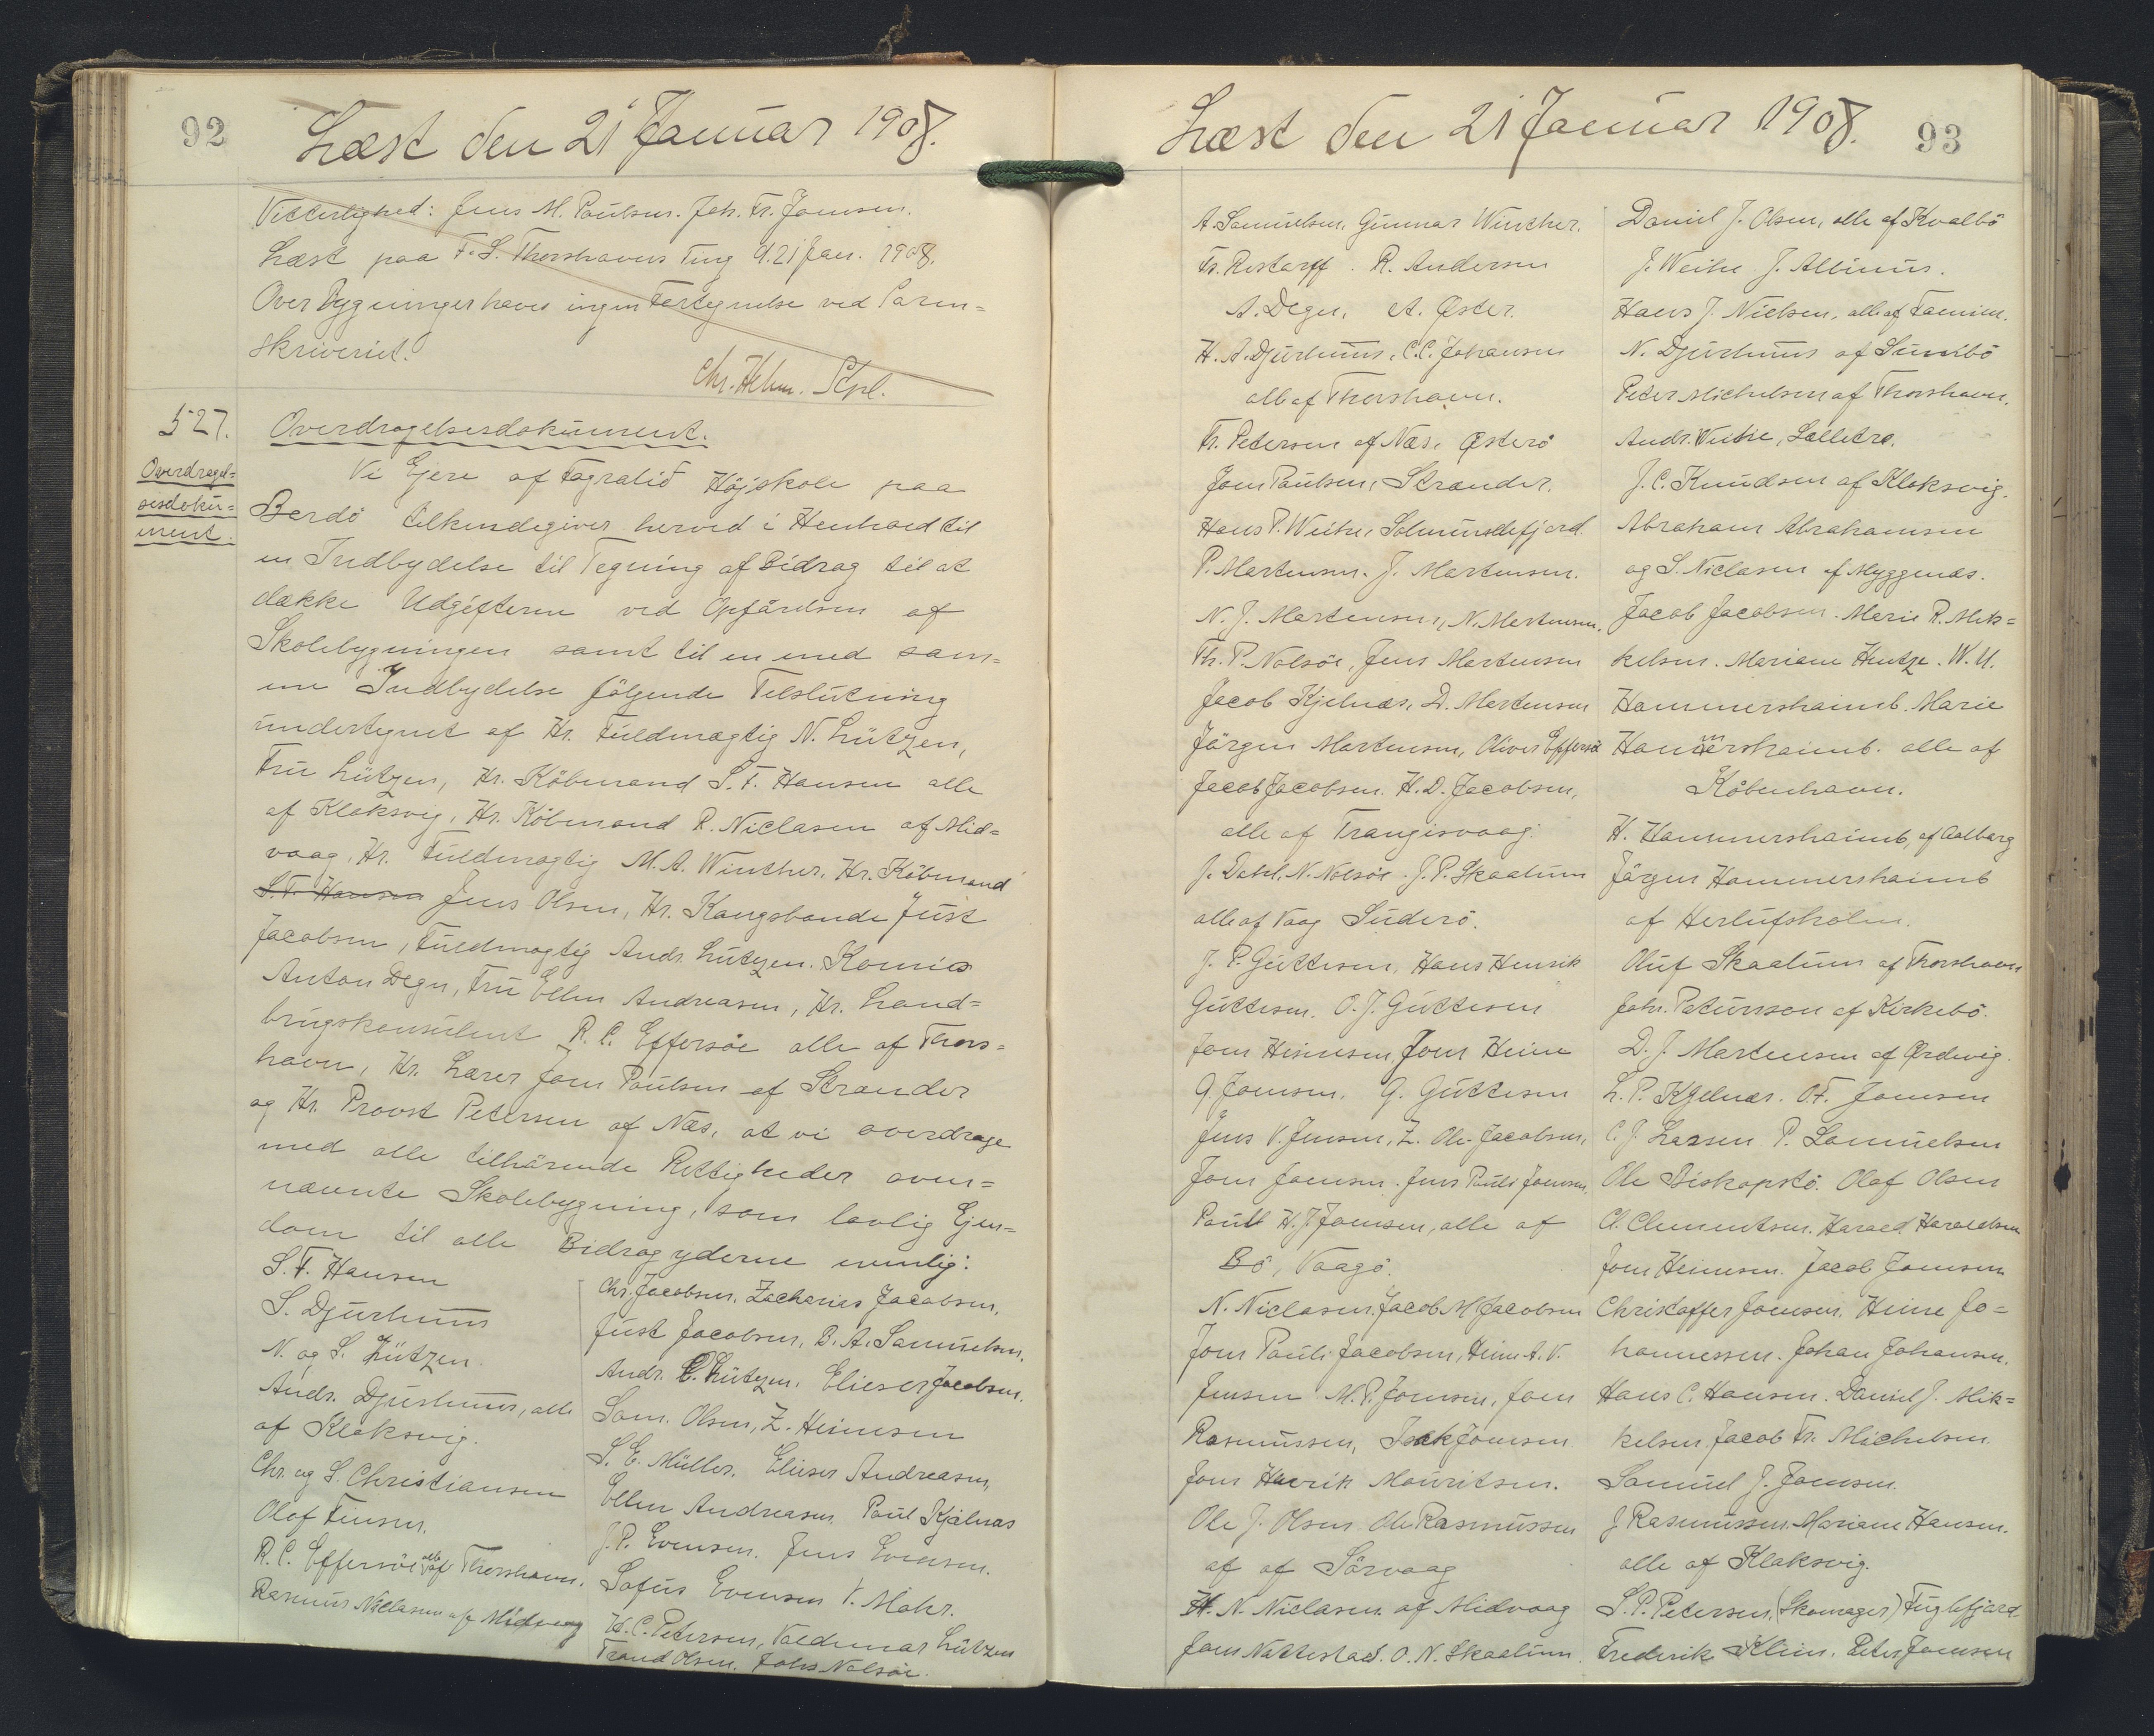 92
Læst den 21 Januar 1908.
Vitterlighed: Jens M. Poulsen. Joh. Fr. Joensen.
Læst paa F. S. Thorshavns Ting d. 21 Jan. 1908.
Over Bygninger haves ingen Fortegnelse ved Soren=
skriveriet.
Chr. Hehm. Stpl.
527.
Overdragel=
sesdoku=
ment.
Overdragelsesdokument.
Vi Ejere af Fagralid Højskole paa
Bordö tilkendegiver herved i Henhold til
en Indbydelse til Tegning af Bidrag til at
dække Udgifterne ved Opførelsen af
Skolebygningen samt til en med sam=
me Indbydelse følgende Tilslutning
undertegnet af Hr. Fuldmægtig N. Lützen,
Fru Lützen, Hr. Købmand S. F. Hansen alle
af Klaksvig, Hr. Købmand R. Niclasen af Mid=
vaag, Hr. Fuldmægtig M. A. Winther. Hr. Købmand
S. F. Hansen Jens Olsen, Hr. Kongsbonde Just
Jacobsen, Fuldmægtig Andr. Lützen. Komis
Anton Degn, Fru Ellen Andreasen, Hr. Land=
brugskonsulent R. C. Effersöe alle af Thors=
havn, Hr. Lærer Joen Poulsen af Strænder
og Hr. Provst Petersen af Næs, at vi overdrage
med alle tilhørende Rettigheder oven=
nævnte Skolebygning, som lovlig Ejen=
dom til alle Bidragyderne nemlig:
S. F. Hansen
S. Djurhuus
N. og S. Lützen.
Andr. Djurhuus, alle
af Klaksvig.
Chr. og S. Christiansen
Olaf Finsen.
R. C. Effersöe alle af Thorshavn.
Rasmus Niclasen af Midvaag
Chr. Jacobsen. Zacharias Jacobsen,
Just Jacobsen, B. A. Samuelsen,
Andr. C. Lützen. Elieser Jacobsen.
Sam. Olsen, Z. Heinesen
S. E. Müller. Elieser Andreasen,
Ellen Andreasen. Poul Kjølnæs
J. P. Evensen. Jens Evensen.
Sofus Evensen V. Mohr.
H. C. Petersen, Valdemar Lützen
Trond Olsen. Johs Nolsöe.
Læst den 21 Januar 1908.
93
A. Samuelsen, Gunnar Winther.
Fr. Restorff. R. Andersen
A. Degn, A. Øster.
H. A. Djurhuus, C. C. Johansen
alle af Thorshavn.
Fr. Petersen af Næs, Østerö
Joen Poulsen, Strænder.
Hans P. Weihe, Solmundefjord.
P. Mortensen. J. Mortensen.
N. J. Mortensen, N. Mortensen.
Th. P. Nolsöe, Jens Mortensen
Jacob Kjelnæs, D. Mortensen
Jörgen Mortensen, Oliver Effersö
Jacob Jacobsen. H. D. Jacobsen,
alle af Trangisvaag.
J. Dahl, N. Nolsöe. J. P. Skaalum
alle af Vaag Suderö.
J. P. Guttesen, Hans Henrik
Guttesen. O. J. Guttesen
Joen Heinesen, Joen Heine
G. Joensen. G. Guttesen
Jens V. Jensen, Z. Ole Jacobsen,
Joen Joensen. Jens Pauli Joensen,
Poull H. J. Joensen, alle af
Bö, Vaagö.
N. Niclasen. Jacob M Jacobsen
Joen Pauli Jacobsen, Heine A. V.
Jensen M. P. Joensen, Joen
Rasmussen, Isak Joensen
Joen Henrik Mouritsen.
Ole J. Olsen Ole Rasmussen
af af Sörvaag
H. N. Niclasen af Midvaag
Joen Nattestad. O. N. Skaalum.
Daniel J. Olsen, alle af Kvalbö
J. Weihe J. Albinus.
Hans J. Nielsen, alle af Famien.
N. Djurhuus af Sumbö
Peter Michelsen af Thorshavn.
Andr. Weihe, Selletræ.
J. C. Knudsen af Klaksvig.
Abraham Abrahamsen
og S. Niclasen af Myggenæs.
Jacob Jacobsen. Marie R. Mik=
kelsen. Mariane Hentze. W. U.
Hammershaimb. Marie
Hammershaimb. alle af
København.
H. Hammershaimb, af Aalborg
Jörgen Hammershaimb
af Herlufsholm.
Oluf Skaalum af Thorshavn
Johs. Patursson af Kirkebö.
D. J. Mortensen af Ørdevig.
L. P. Kjelnæs. O. F. Joensen
C. J. Lassen P. Samuelsen
Ole Biskopstö. Olaf Olsen
Cl. Clementsen. Harald Haraldsen
Joen Heinesen. Jacob Joensen
Christoffer Joensen, Heine Jo=
hannessen. Johan Johansen.
Hans C. Hansen. Daniel J. Mik=
kelsen Jacob Fr. Michelsen.
Samuel J. Joensen.
J Rasmussen. Mariane Hansen.
alle af Klaksvig.
S. P. Petersen, (Skomager) Fuglefjord
Frederik Klein. Peter Joensen